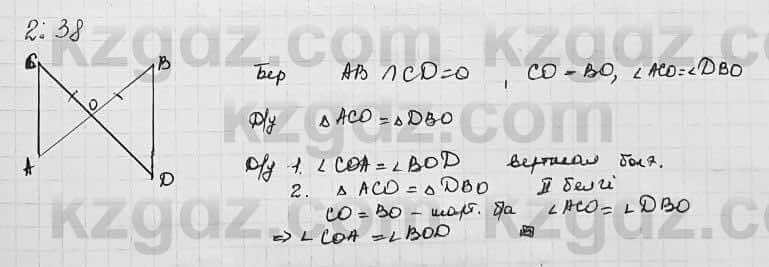 2.38
C B Бер AB ∩ CD = O, CO = BO, ∠ACO = ∠DBO
O
Д/у △ACO = △DBO
A D Д/у 1. ∠COA = ∠BOD вертикал бол.
2. △ACO = △DBO II белгі
CO = BO – шарт. ∠ACO = ∠DBO
⇒ ∠COA = ∠BOD
kzgdz.com